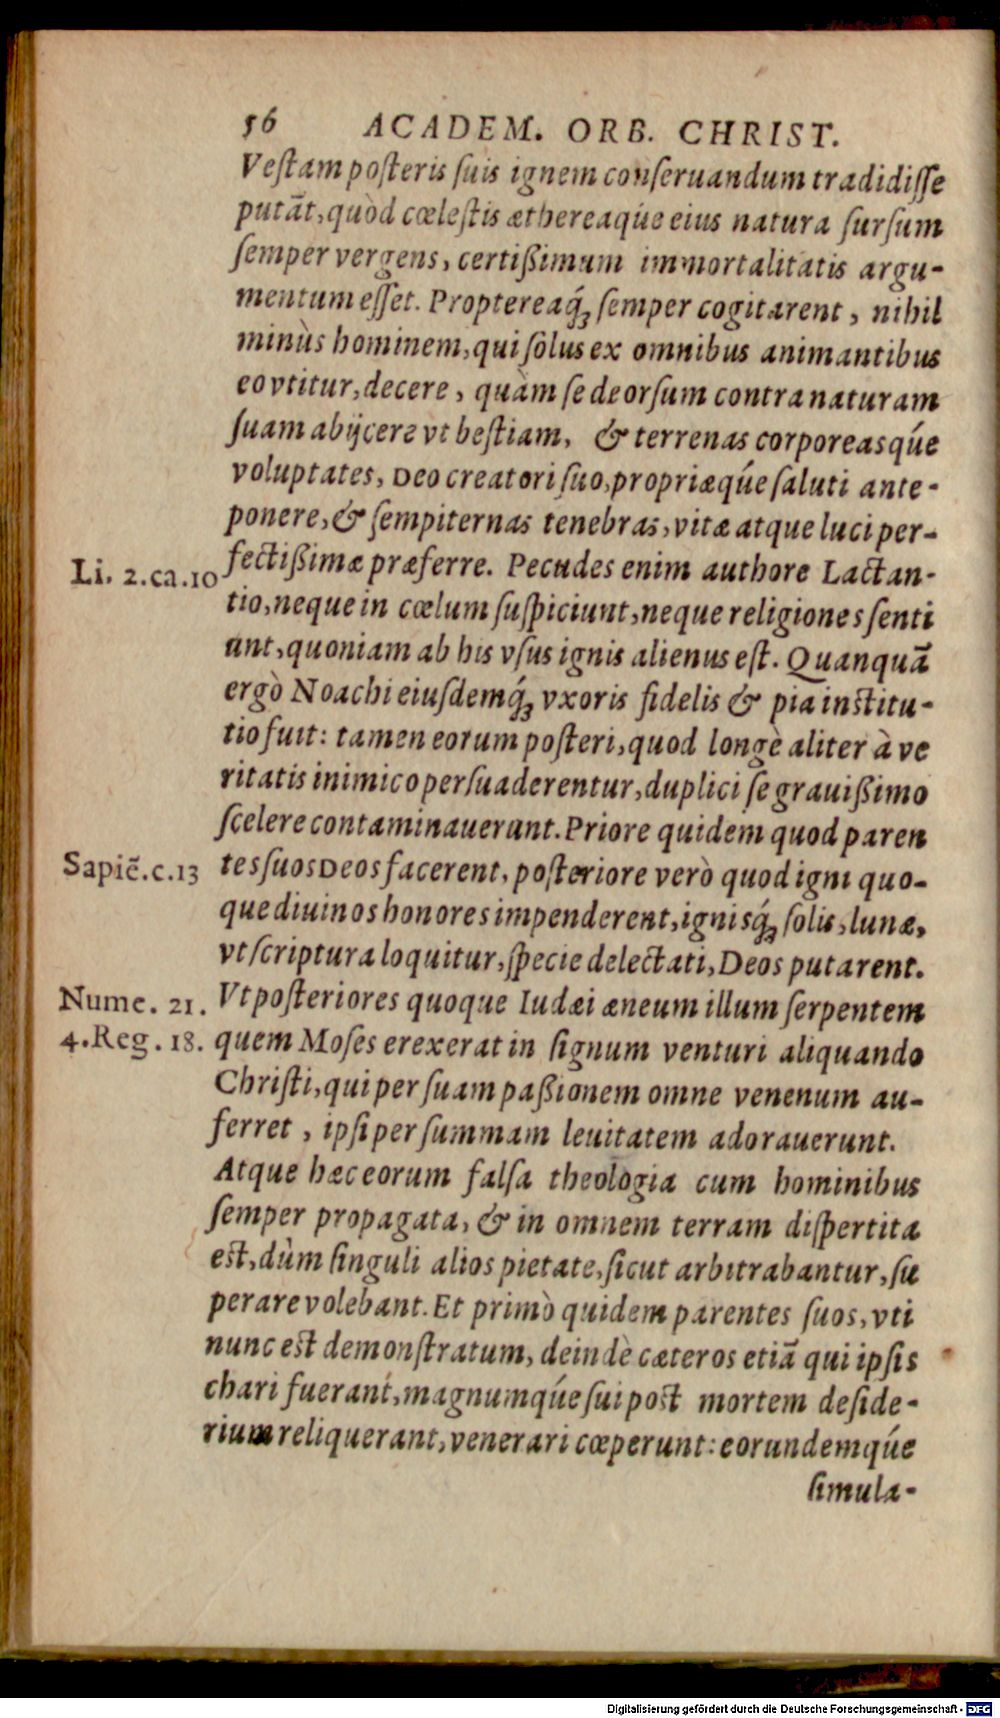 56 ACADEM. ORB. CHRIST.
Veſtam poſteris ſuis ignem conſeruandum tradidiſſe
putãt, quòd cœleſtis æthereaqúe eius natura ſurſum
ſemper vergens, certißimum immortalitatis argu-
mentum eſſet. Proptereaq́; ſemper cogitarent, nihil
minùs hominem, qui ſolus ex omnibus animantibus
eo vtitur, decere, quàm ſe deorſum contra naturam
ſuam abijcere vt beſtiam, & terrenas corporeasqúe
voluptates, Deo creatori ſuo, propriæqúe ſaluti ante-
ponere, & ſempiternas tenebras, vitæ atque luci per-
Li. 2. ca. 10 fectißimæ præferre. Pecudes enim authore Lactan-
tio, neque in cœlum ſuſpiciunt, neque religiones ſenti
unt, quoniam ab his vſus ignis alienus eſt. Quanquã
ergò Noachi eiuſdemq́; vxoris fidelis & pia inſtitu-
tio fuit: tamen eorum poſteri, quod longè aliter à ve
ritatis inimico perſuaderentur, duplici ſe grauißimo
ſcelere contaminauerunt. Priore quidem quod paren
Sapiẽ. c. 13 tes ſuos Deos facerent, poſteriore verò quod igni quo-
que diuinos honores impenderent, ignisq́; ſolis, lunæ,
vt ſcriptura loquitur, ſpecie delectati, Deos putarent.
Nume. 21. Vt poſteriores quoque Iudæi æneum illum ſerpentem
4. Reg. 18. quem Moſes erexerat in ſignum venturi aliquando
Chriſti, qui per ſuam paßionem omne venenum au-
ferret, ipſi per ſummam leuitatem adorauerunt.
Atque hæc eorum falſa theologia cum hominibus
ſemper propagata, & in omnem terram diſpertita
eſt, dùm ſinguli alios pietate, ſicut arbitrabantur, ſu
perare volebant. Et primò quidem parentes ſuos, vti
nunc eſt demonſtratum, deindè cæteros etiã qui ipſis
chari fuerant, magnumqúe ſui poſt mortem deſide-
rium reliquerant, venerari cœperunt: eorundemqúe
ſimula-
Digitalisierung gefördert durch die Deutsche Forschungsgemeinschaft - DFG